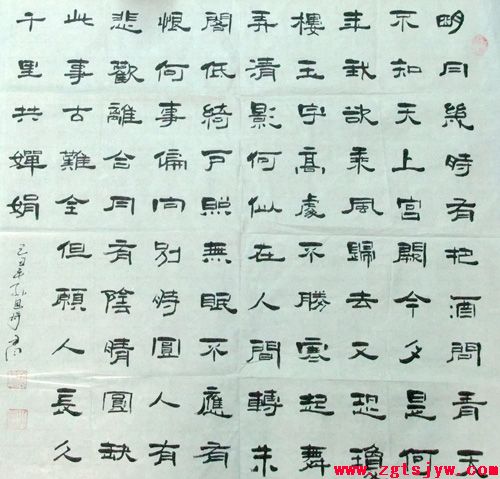 明月幾時有把酒問青天
不知天上宮闕今夕是何
年我欲乘風歸去又恐瓊
樓玉宇高處不勝寒起舞
弄清影何似在人間轉朱
閣低綺戶照無眠不應有
恨何事偏向別時圓人有
悲歡離合月有陰晴圓缺
此事古難全但願人長久
千里共嬋娟
己丑年
www.zgtsjyw.com